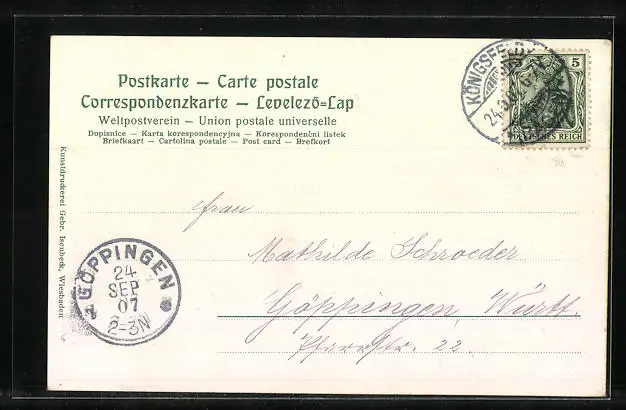 Postkarte – Carte postale
Correspondenzkarte – Levelező-Lap
Weltpostverein – Union postale universelle
Dopisnice – Karta korespondencyjna – Korespondenční lístek
Briefkaart – Cartolina postale – Post card – Brefkort
KÖNIGSFELD
24.9.07
5
DEUTSCHES REICH
Frau
Mathilde Schroeder
Göppingen, Württ.
Pfarrstr. 22.
GÖPPINGEN
24
SEP
07
2-3N
Kunstdruckerei Gebr. Isenbeck, Wiesbaden